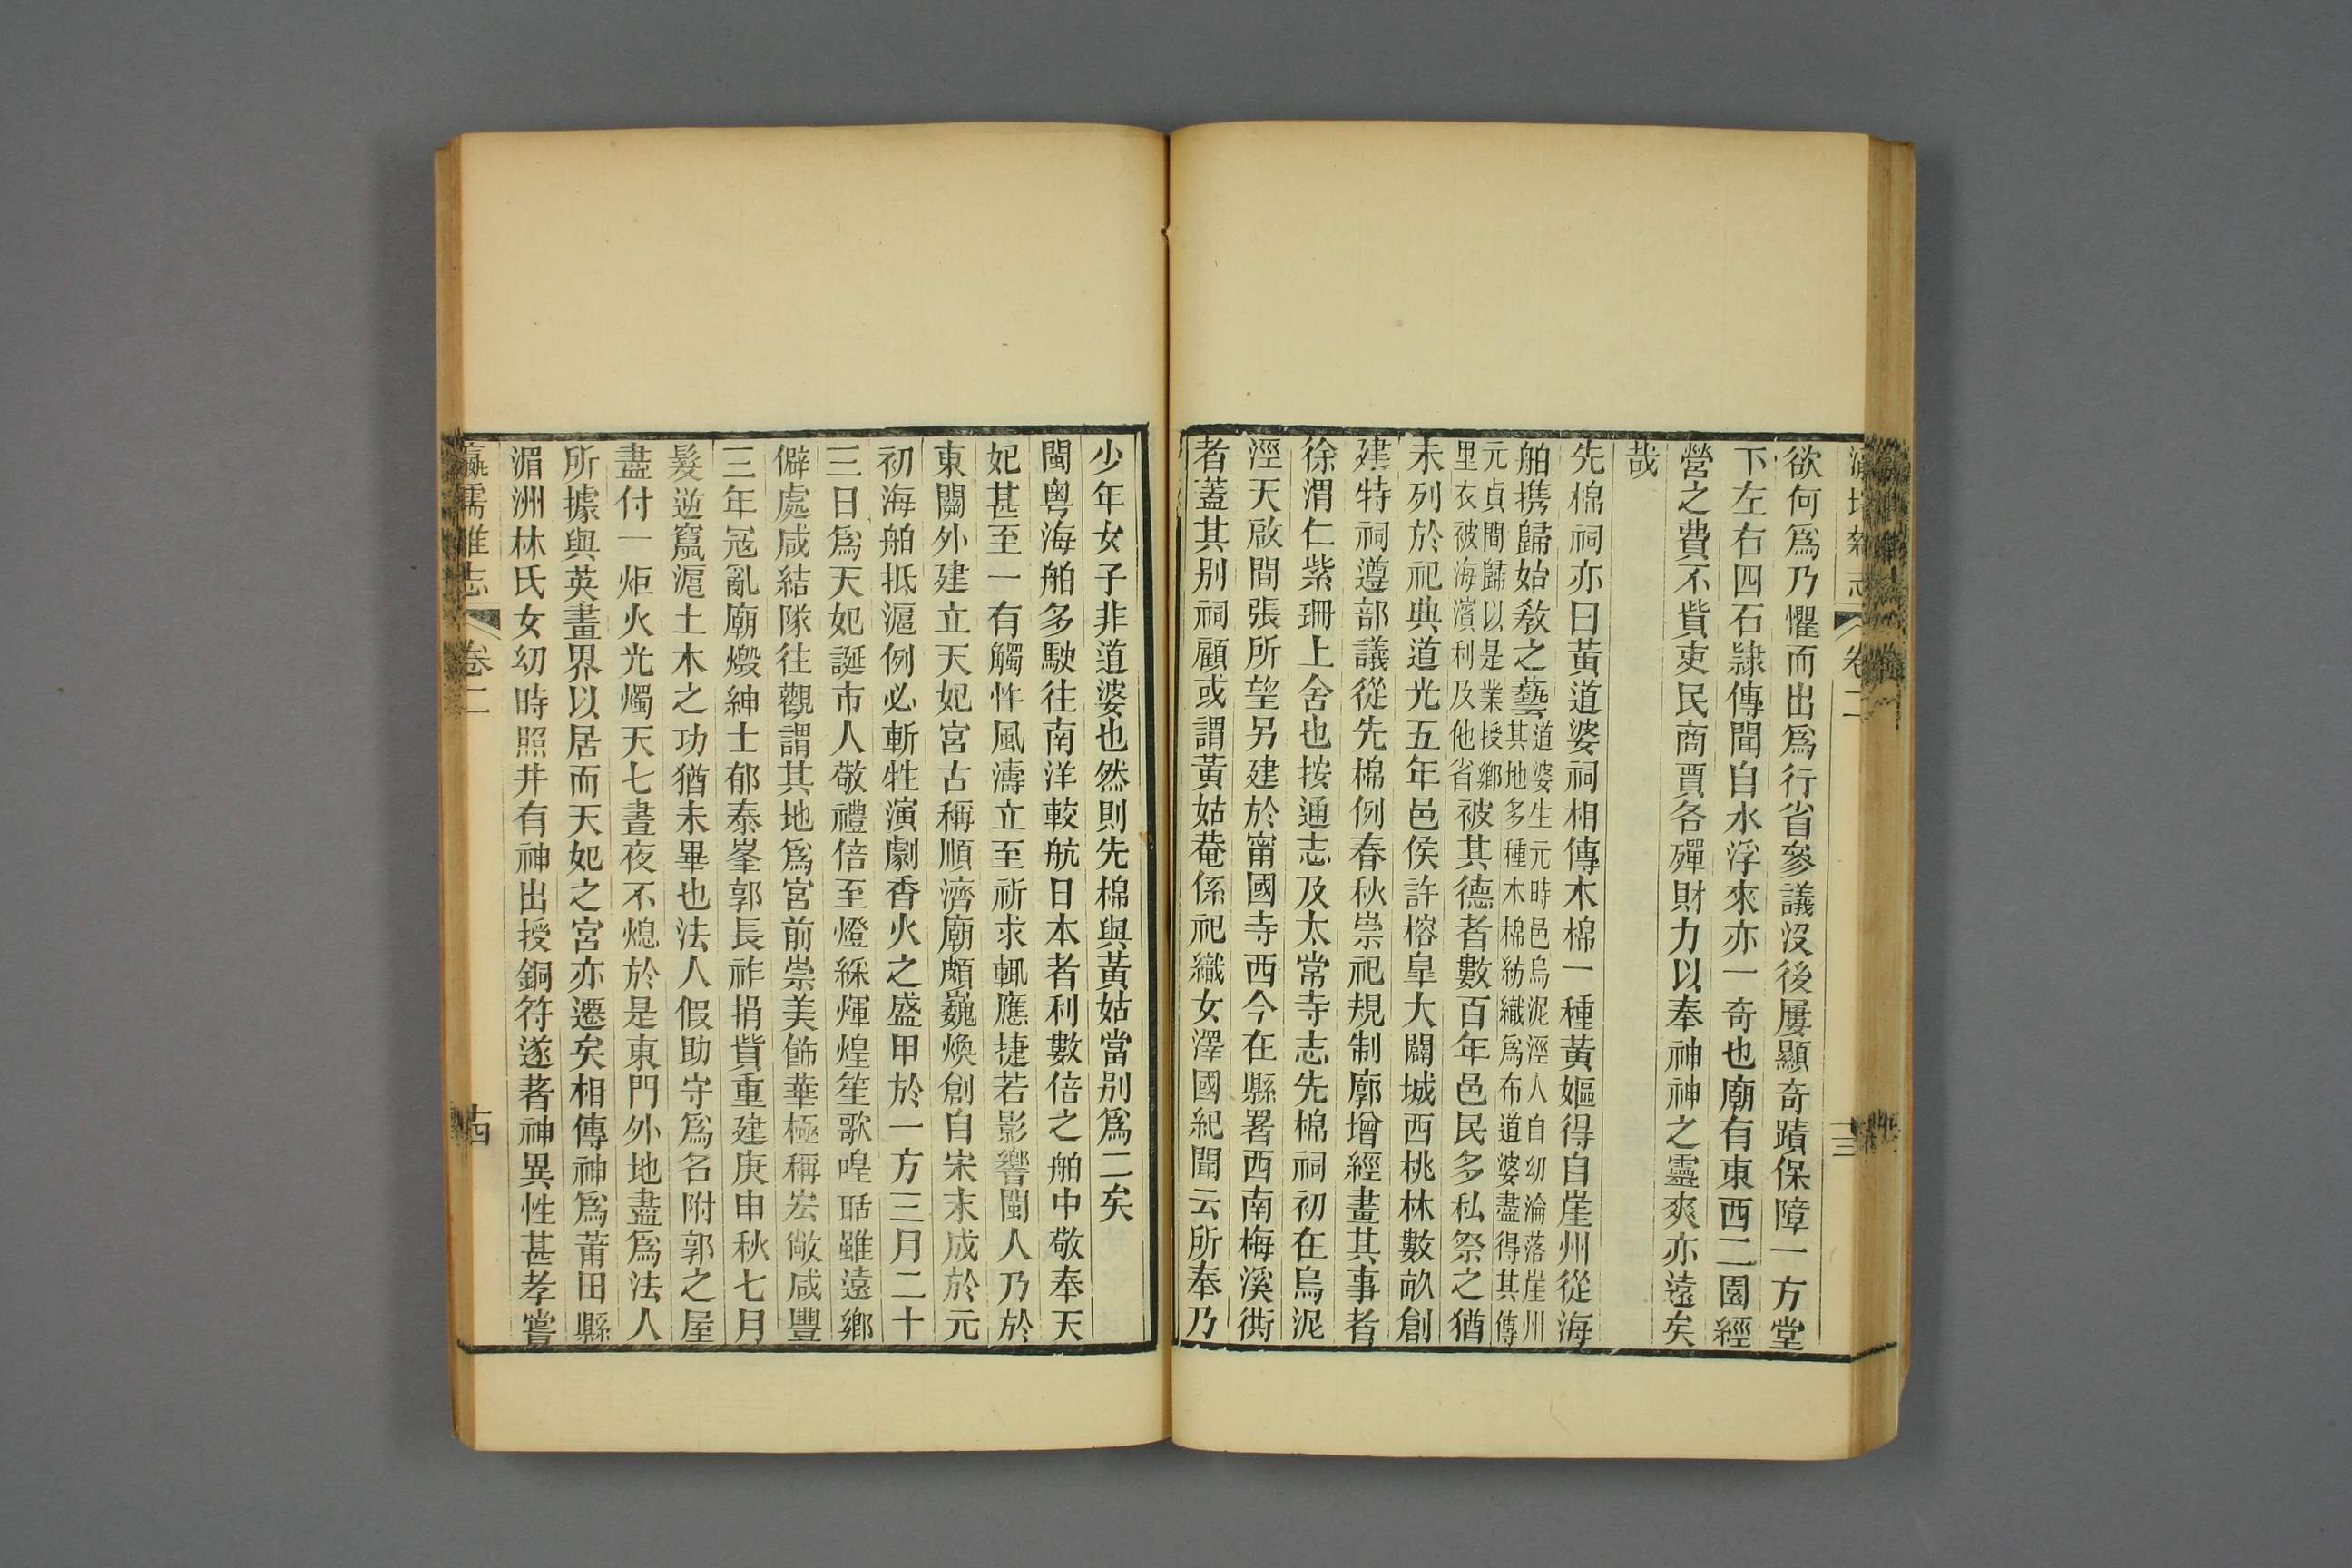 志
卷二
欲何爲乃懼而出爲行省參議沒後屢顯奇蹟保障一方堂
下左右四石隷傳聞自水浮來亦一奇也廟有東西二園經
營之費不貲吏民商賈各殫財力以奉神神之靈爽亦遠矣
哉
先棉祠亦曰黃道婆祠相傳木棉一種黃嫗得自崖州從海
舶携歸始敎之藝道婆生元時邑烏泥涇人自幼淪落崖州
其地多種木棉紡織爲布道婆盡得其傳
元貞間歸以是業授鄉
里衣被海濱利及他省被其德者數百年邑民多私祭之猶
未列於祀典道光五年邑侯許榕臯大闢城西桃林數畝創
建特祠遵部議從先棉例春秋崇祀規制廓增經畫其事者
徐渭仁紫珊上舍也按通志及太常寺志先棉祠初在烏泥
涇天啟間張所望另建於甯國寺西今在縣署西南梅溪衖
者蓋其别祠顧或謂黃姑菴係祀織女澤國紀聞云所奉乃
少年女子非道婆也然則先棉與黃姑當别爲二矣
閩粤海舶多駛往南洋較航日本者利數倍之舶中敬奉天
妃甚至一有觸忤風濤立至祈求輒應捷若影響閩人乃於
東關外建立天妃宮古稱順濟廟頗巍煥創自宋末成於元
初海舶抵滬例必斬牲演劇香火之盛甲於一方三月二十
三日爲天妃誕市人敬禮倍至燈綵煇煌笙歌喤聒雖遠鄉
僻處咸結隊往觀謂其地爲宮前崇美飾華極稱宏敞咸豐
三年冦亂廟燬紳士郁泰峯郭長祚捐貲重建庚申秋七月
髮逆竄滬土木之功猶未畢也法人假助守爲名附郭之屋
盡付一炬火光燭天七晝夜不熄於是東門外地盡爲法人
所據與英畫界以居而天妃之宮亦遷矣相傳神爲莆田縣
湄洲林氏女幼時照井有神出授銅符遂著神異性甚孝嘗
瀛壖雜志
卷二
十四